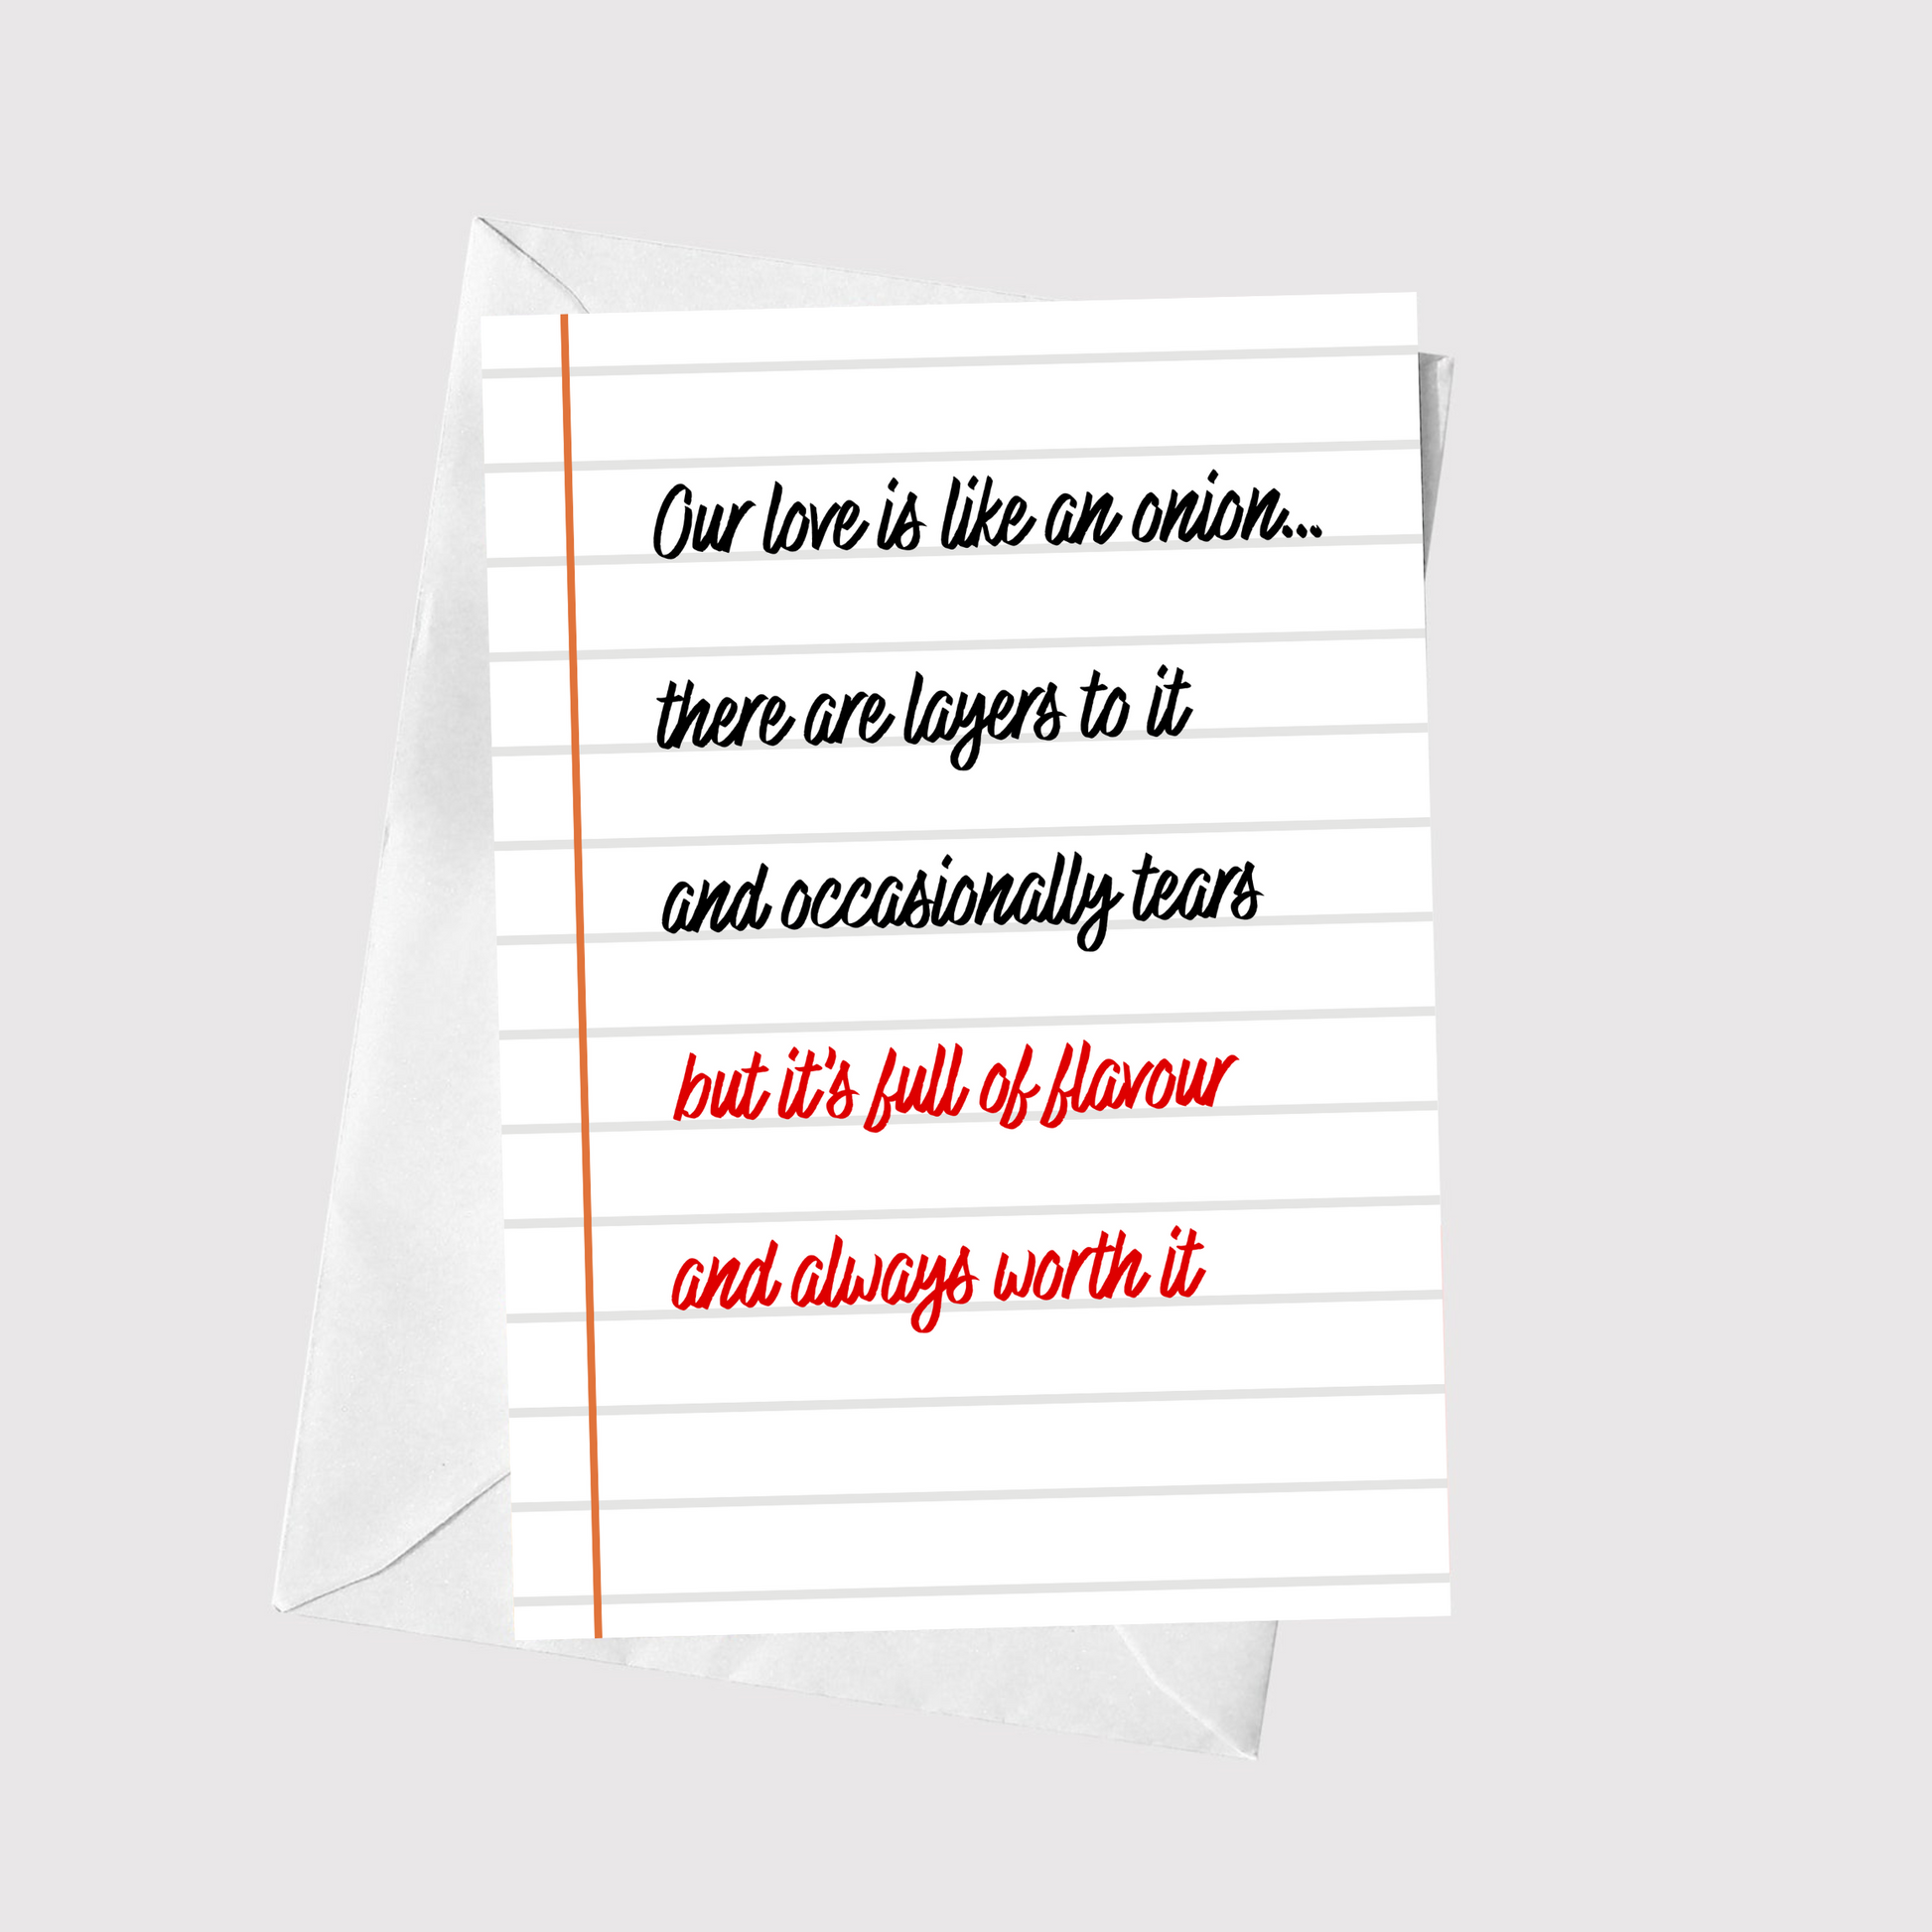 Our love is like an onion...
there are layers to it
and occasionally tears
but it's full of flavour
and always worth it